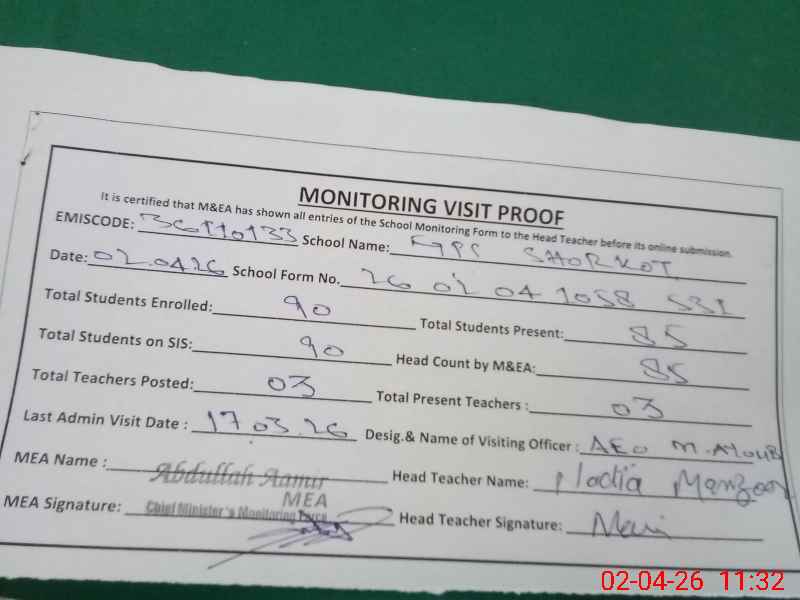 MONITORING VISIT PROOF
It is certified that M&EA has shown all entries of the School Monitoring Form to the Head Teacher before its online submission.
EMISCODE: 36110133 School Name: GGPS SHORKOT
Date: 02.04.26 School Form No. 26 02 04 1058 531
Total Students Enrolled: 90 Total Students Present: 85
Total Students on SIS: 90 Head Count by M&EA: 85
Total Teachers Posted: 03 Total Present Teachers : 03
Last Admin Visit Date : 17.03.26 Desig.& Name of Visiting Officer : AEO M.AYOUB
MEA Name : Abdullah Aamir Head Teacher Name: Nadia Manzoor
MEA
MEA Signature: Chief Minister's Monitoring Force Head Teacher Signature:
02-04-26 11:32